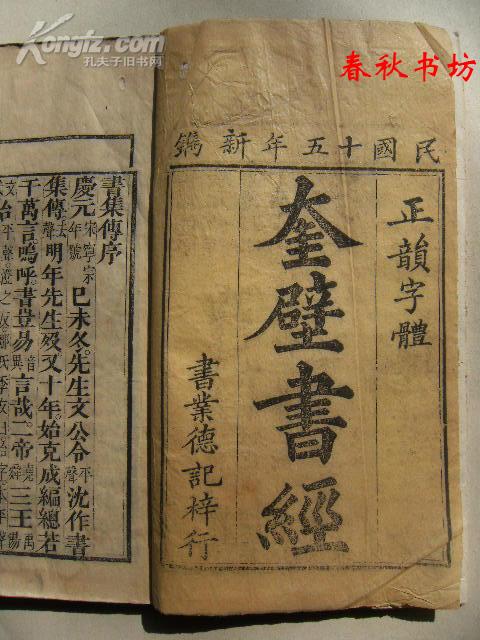 Kongfz.com
孔夫子旧书网
春秋书坊
民國十五年新鐫
正韻字體
奎壁書經
書業德記梓行
書集傳序
慶元宋寧宗年號巳未冬。先生文公令平聲沈作書
集傳去聲明年先生歿。又十年始克成編。總若
干萬言。嗚呼。書豈易音異言哉。二帝堯舜三王禹湯